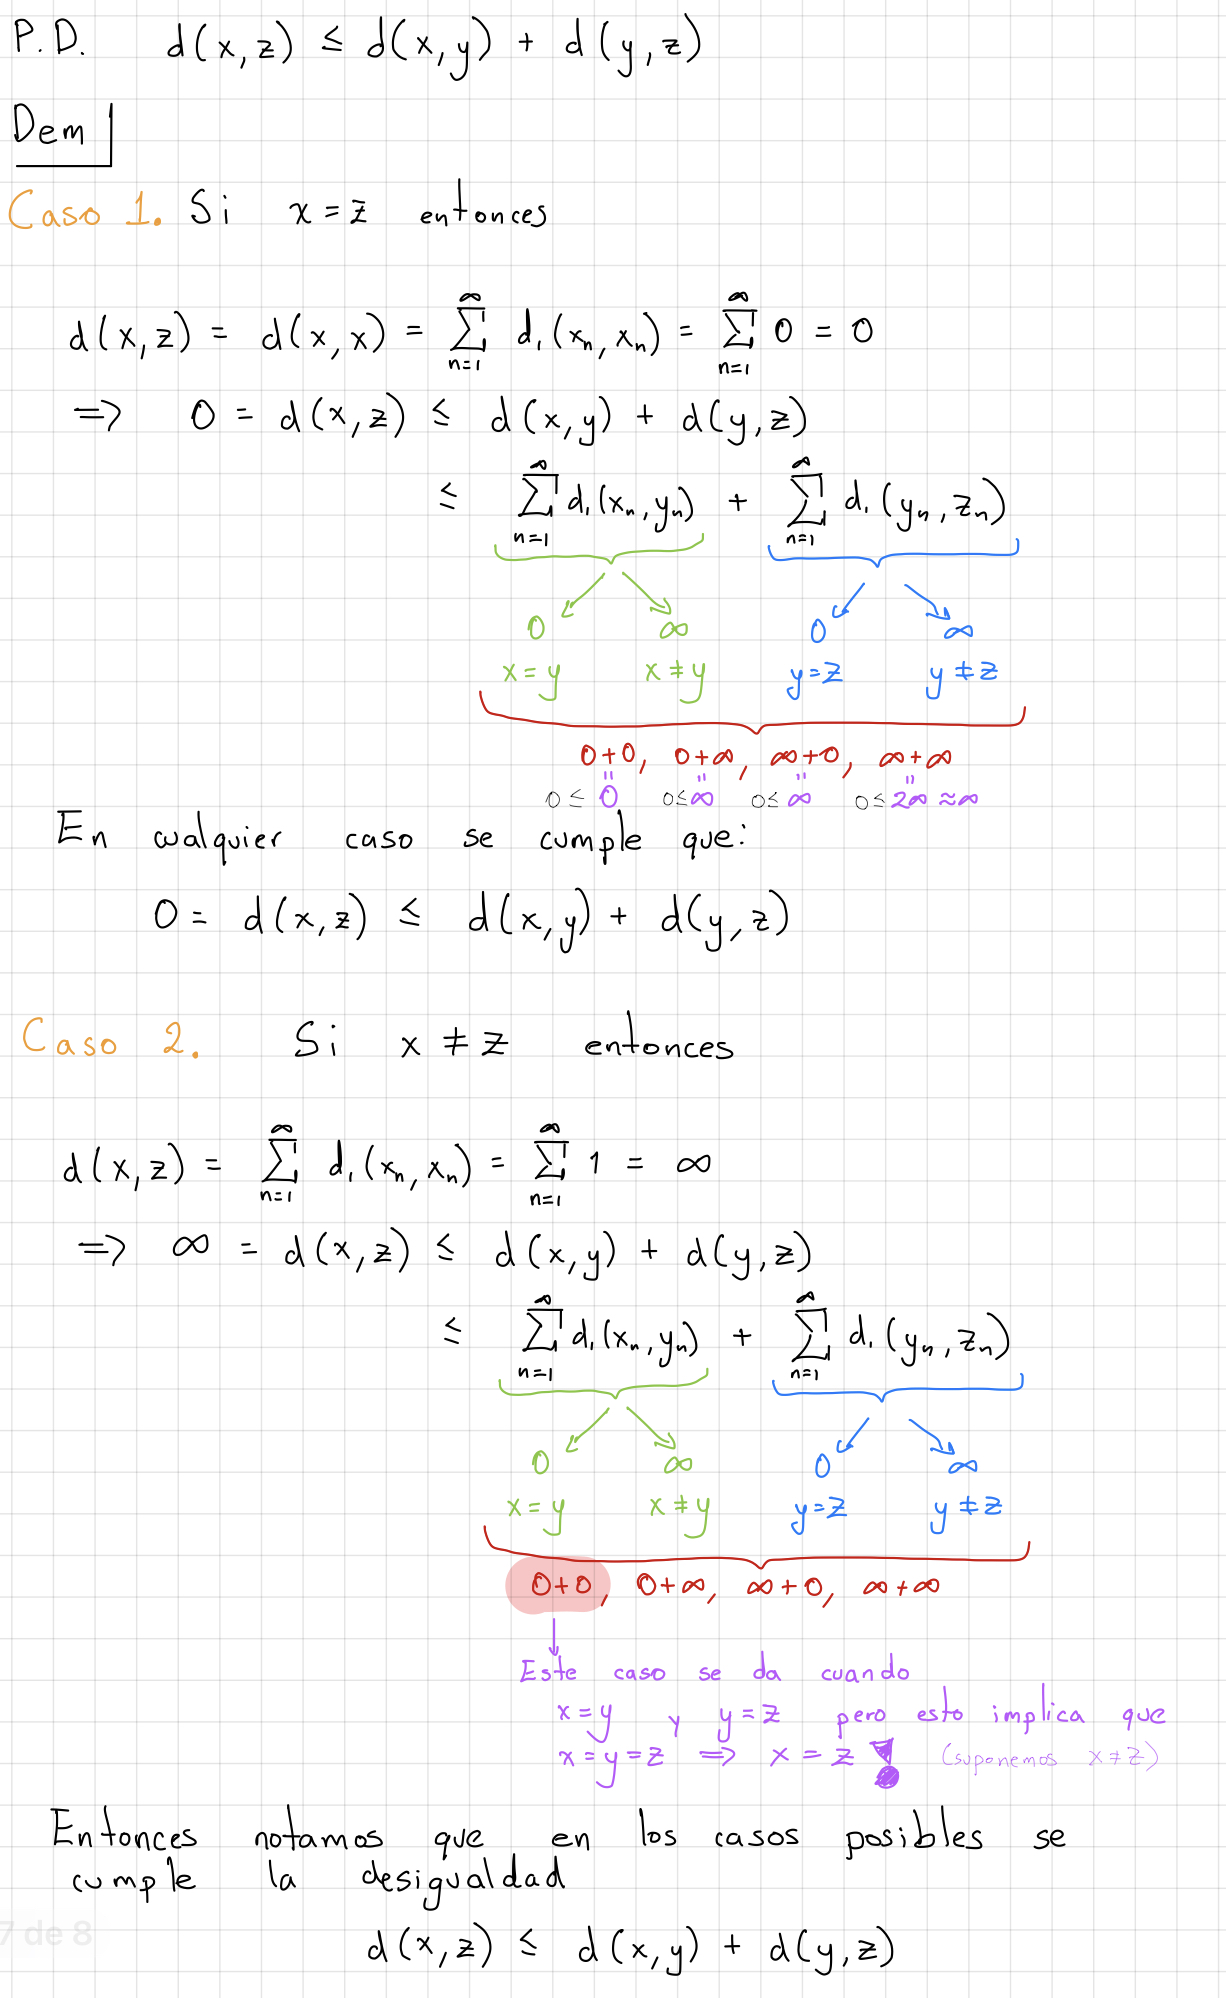 P.D. d(x,z) ≤ d(x,y) + d(y,z)
Dem
Caso 1. Si x = z entonces
d(x,z) = d(x,x) = ∑_{n=1}^{∞} d₁(xₙ,xₙ) = ∑_{n=1}^{∞} 0 = 0
⇒ 0 = d(x,z) ≤ d(x,y) + d(y,z)
≤ ∑_{n=1}^{∞} d₁(xₙ,yₙ) + ∑_{n=1}^{∞} d₁(yₙ,zₙ)
0 ∞ 0 ∞
x = y x ≠ y y = z y ≠ z
0+0, 0+∞, ∞+0, ∞+∞
" " " "
0 ≤ 0 0 ≤ ∞ 0 ≤ ∞ 0 ≤ 2∞ ≈ ∞
En cualquier caso se cumple que:
0 = d(x,z) ≤ d(x,y) + d(y,z)
Caso 2. Si x ≠ z entonces
d(x,z) = ∑_{n=1}^{∞} d₁(xₙ,xₙ) = ∑_{n=1}^{∞} 1 = ∞
⇒ ∞ = d(x,z) ≤ d(x,y) + d(y,z)
≤ ∑_{n=1}^{∞} d₁(xₙ,yₙ) + ∑_{n=1}^{∞} d₁(yₙ,zₙ)
0 ∞ 0 ∞
x = y x ≠ y y = z y ≠ z
0+0, 0+∞, ∞+0, ∞+∞
Este caso se da cuando
x = y y y = z pero esto implica que
x = y = z ⇒ x = z ! (suponemos x ≠ z)
Entonces notamos que en los casos posibles se
cumple la desigualdad
7 de 8
d(x,z) ≤ d(x,y) + d(y,z)